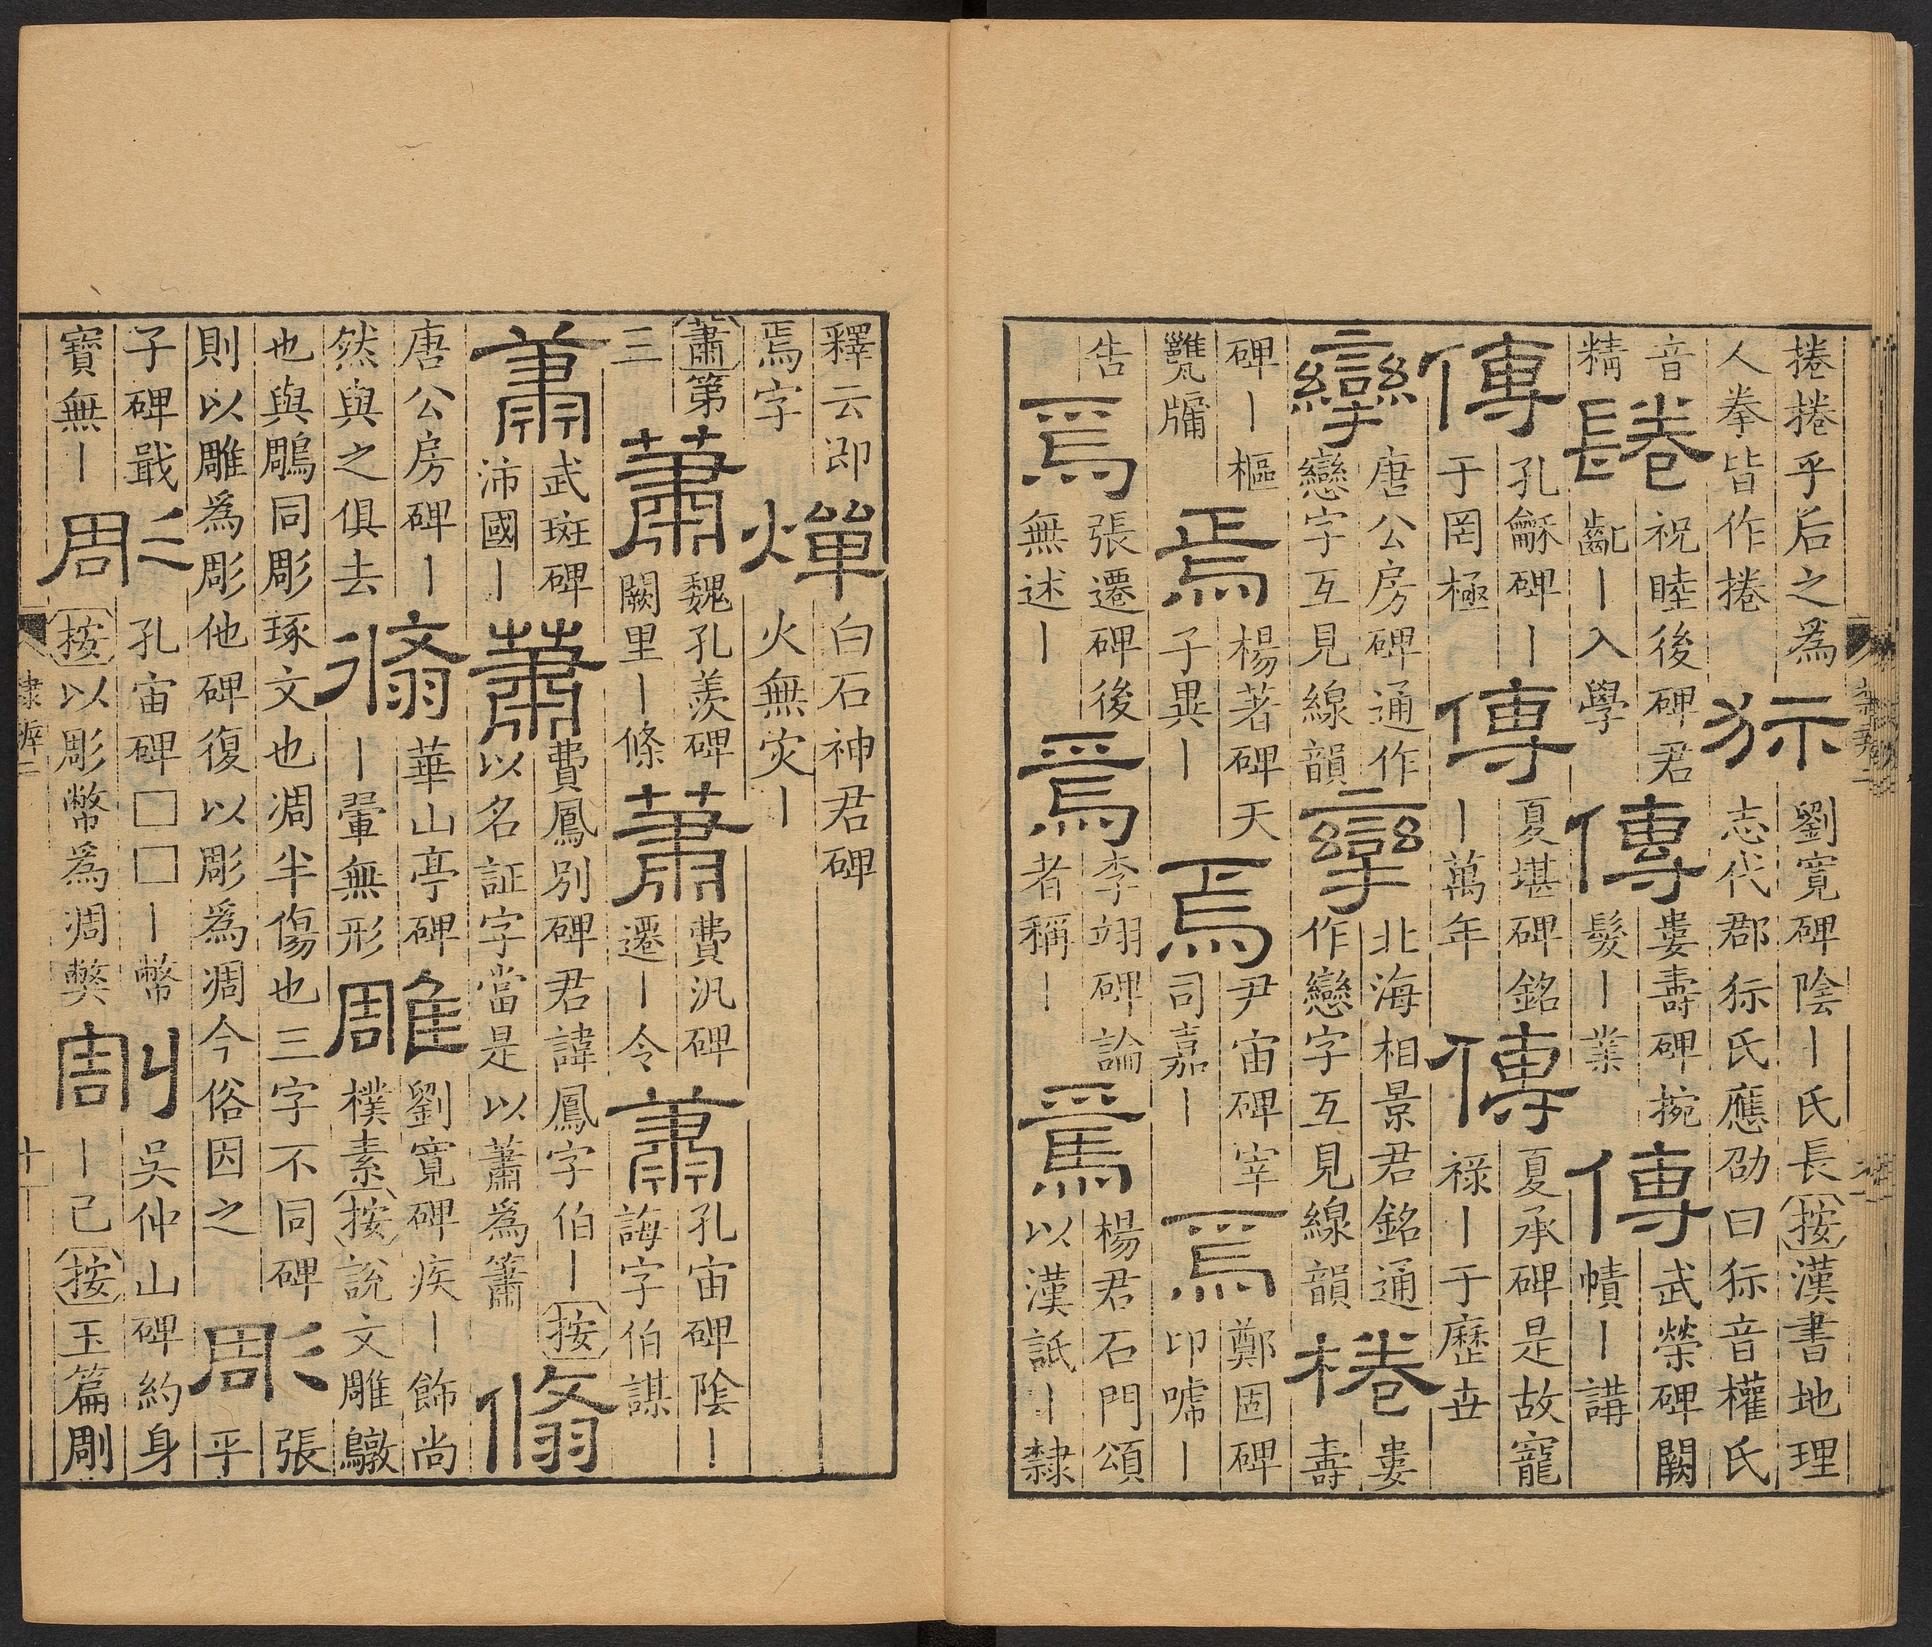 捲捲乎后之爲
人拳皆作捲
狋
劉寬碑陰｜氏長按漢書地理
志代郡狋氏應劭曰狋音權氏
音
精
祝睦後碑君
齔｜入學
傳
婁壽碑捥
髮｜業
傳
武榮碑闕
幘｜講
傳
孔龢碑｜
于罔極
傳
夏堪碑銘
｜萬年
傳
夏承碑是故寵
祿｜于歷世
攣
唐公房碑通作
戀字互見線韻
攣
北海相景君銘通
作戀字互見線韻
棬
婁
壽
碑｜樞
甕牖
焉
楊著碑天
子異｜
焉
尹宙碑宰
司嘉｜
焉
鄭固碑
印嘑｜
告
焉
張遷碑後
無述｜
焉
李翊碑論
者稱｜
焉
楊君石門頌
以漢詆｜隸
釋云即
焉字
燀
白石神君碑
火無灾｜
蕭第
三
蕭
魏孔羨碑
闕里｜條
蕭
費汎碑
遷｜令
蕭
孔宙碑陰｜
誨字伯謀
蕭
武斑碑
沛國｜
蕭
費鳳別碑君諱鳳字伯｜按
以名証字當是以蕭爲簫
翛
唐公房碑｜
然與之俱去
翛
華山亭碑
｜翬無形
雕
劉寬碑疾｜飾尚
樸素按說文雕鷻
也與鵰同彫琢文也凋半傷也三字不同碑
則以雕爲彫他碑復以彫爲凋今俗因之
彫
張
平
子碑戢
寶無｜
彫
孔宙碑□□｜幣
按以彫幣爲凋弊
㓮
吳仲山碑約身
｜己按玉篇㓮
隸辨二
十一